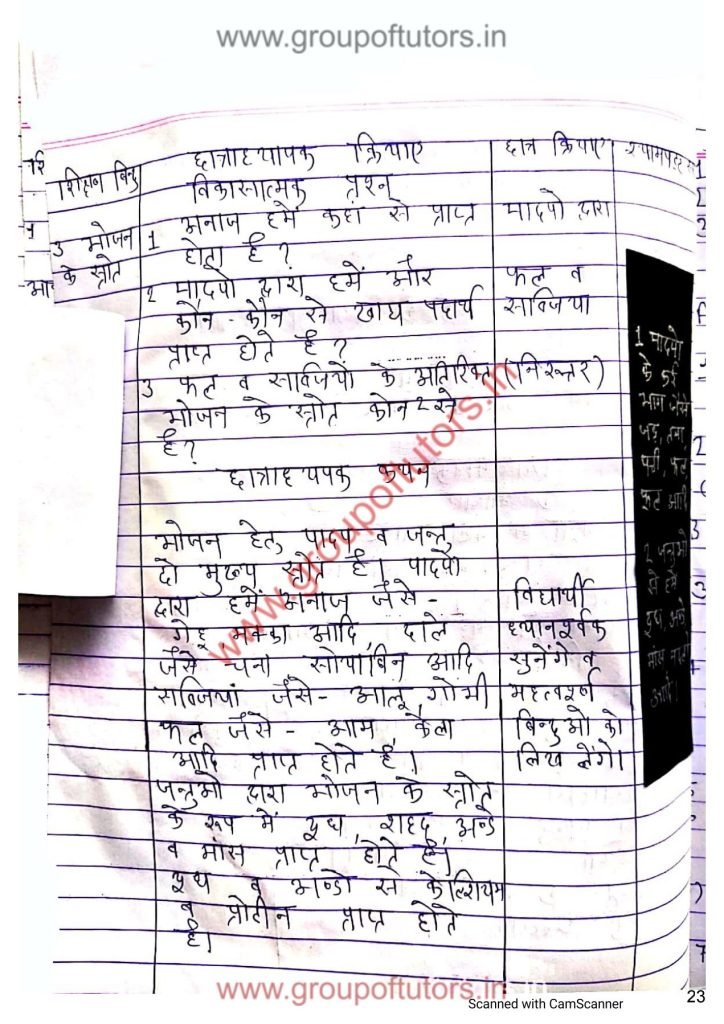 www.groupoftutors.in
शिक्षण बिन्दु
छात्राध्यापक क्रियाएं
छात्र क्रियाएं
श्यामपट्ट
विकासात्मक प्रश्न
3 भोजन
के स्त्रोत
1 अनाज हमें कहां से प्राप्त
होता है?
पादपो द्वारा
2 पादपो द्वारा हमें और
कौन-कौन से खाद्य पदार्थ
प्राप्त होते है?
फल व
सब्जियां
3 फल व सब्जियों के अतिरिक्त
भोजन के स्त्रोत कौन 2 से
है?
(निरुत्तर)
छात्राध्यापक कथन
भोजन हेतु पादप व जन्तु
दो मुख्य स्त्रोत है। पादपो
द्वारा हमें अनाज जैसे-
गेहू मक्का आदि, दाले
जैसे- चना सोयाबिन आदि
सब्जियां जैसे- आलू, गोभी
फल जैसे- आम, केला
आदि प्राप्त होते है।
जन्तुओ द्वारा भोजन के स्त्रोत
के रूप में दूध, शहद, अन्डे
व मांस प्राप्त होते है।
दूध व अन्डो से केल्शियम
व प्रोटीन प्राप्त होते
है।
विद्यार्थी
ध्यानपूर्वक
सुनेंगे व
महत्वपूर्ण
बिन्दुओ को
लिख लेंगे।
1 पादपो
के कई
भाग जैसे
जड़, तना
पत्ती, फल
फूल आदि
2 जन्तुओ
से हमें
दूध अन्डे
मांस
www.groupoftutors.in
www.groupoftutors.in
Scanned with CamScanner
23